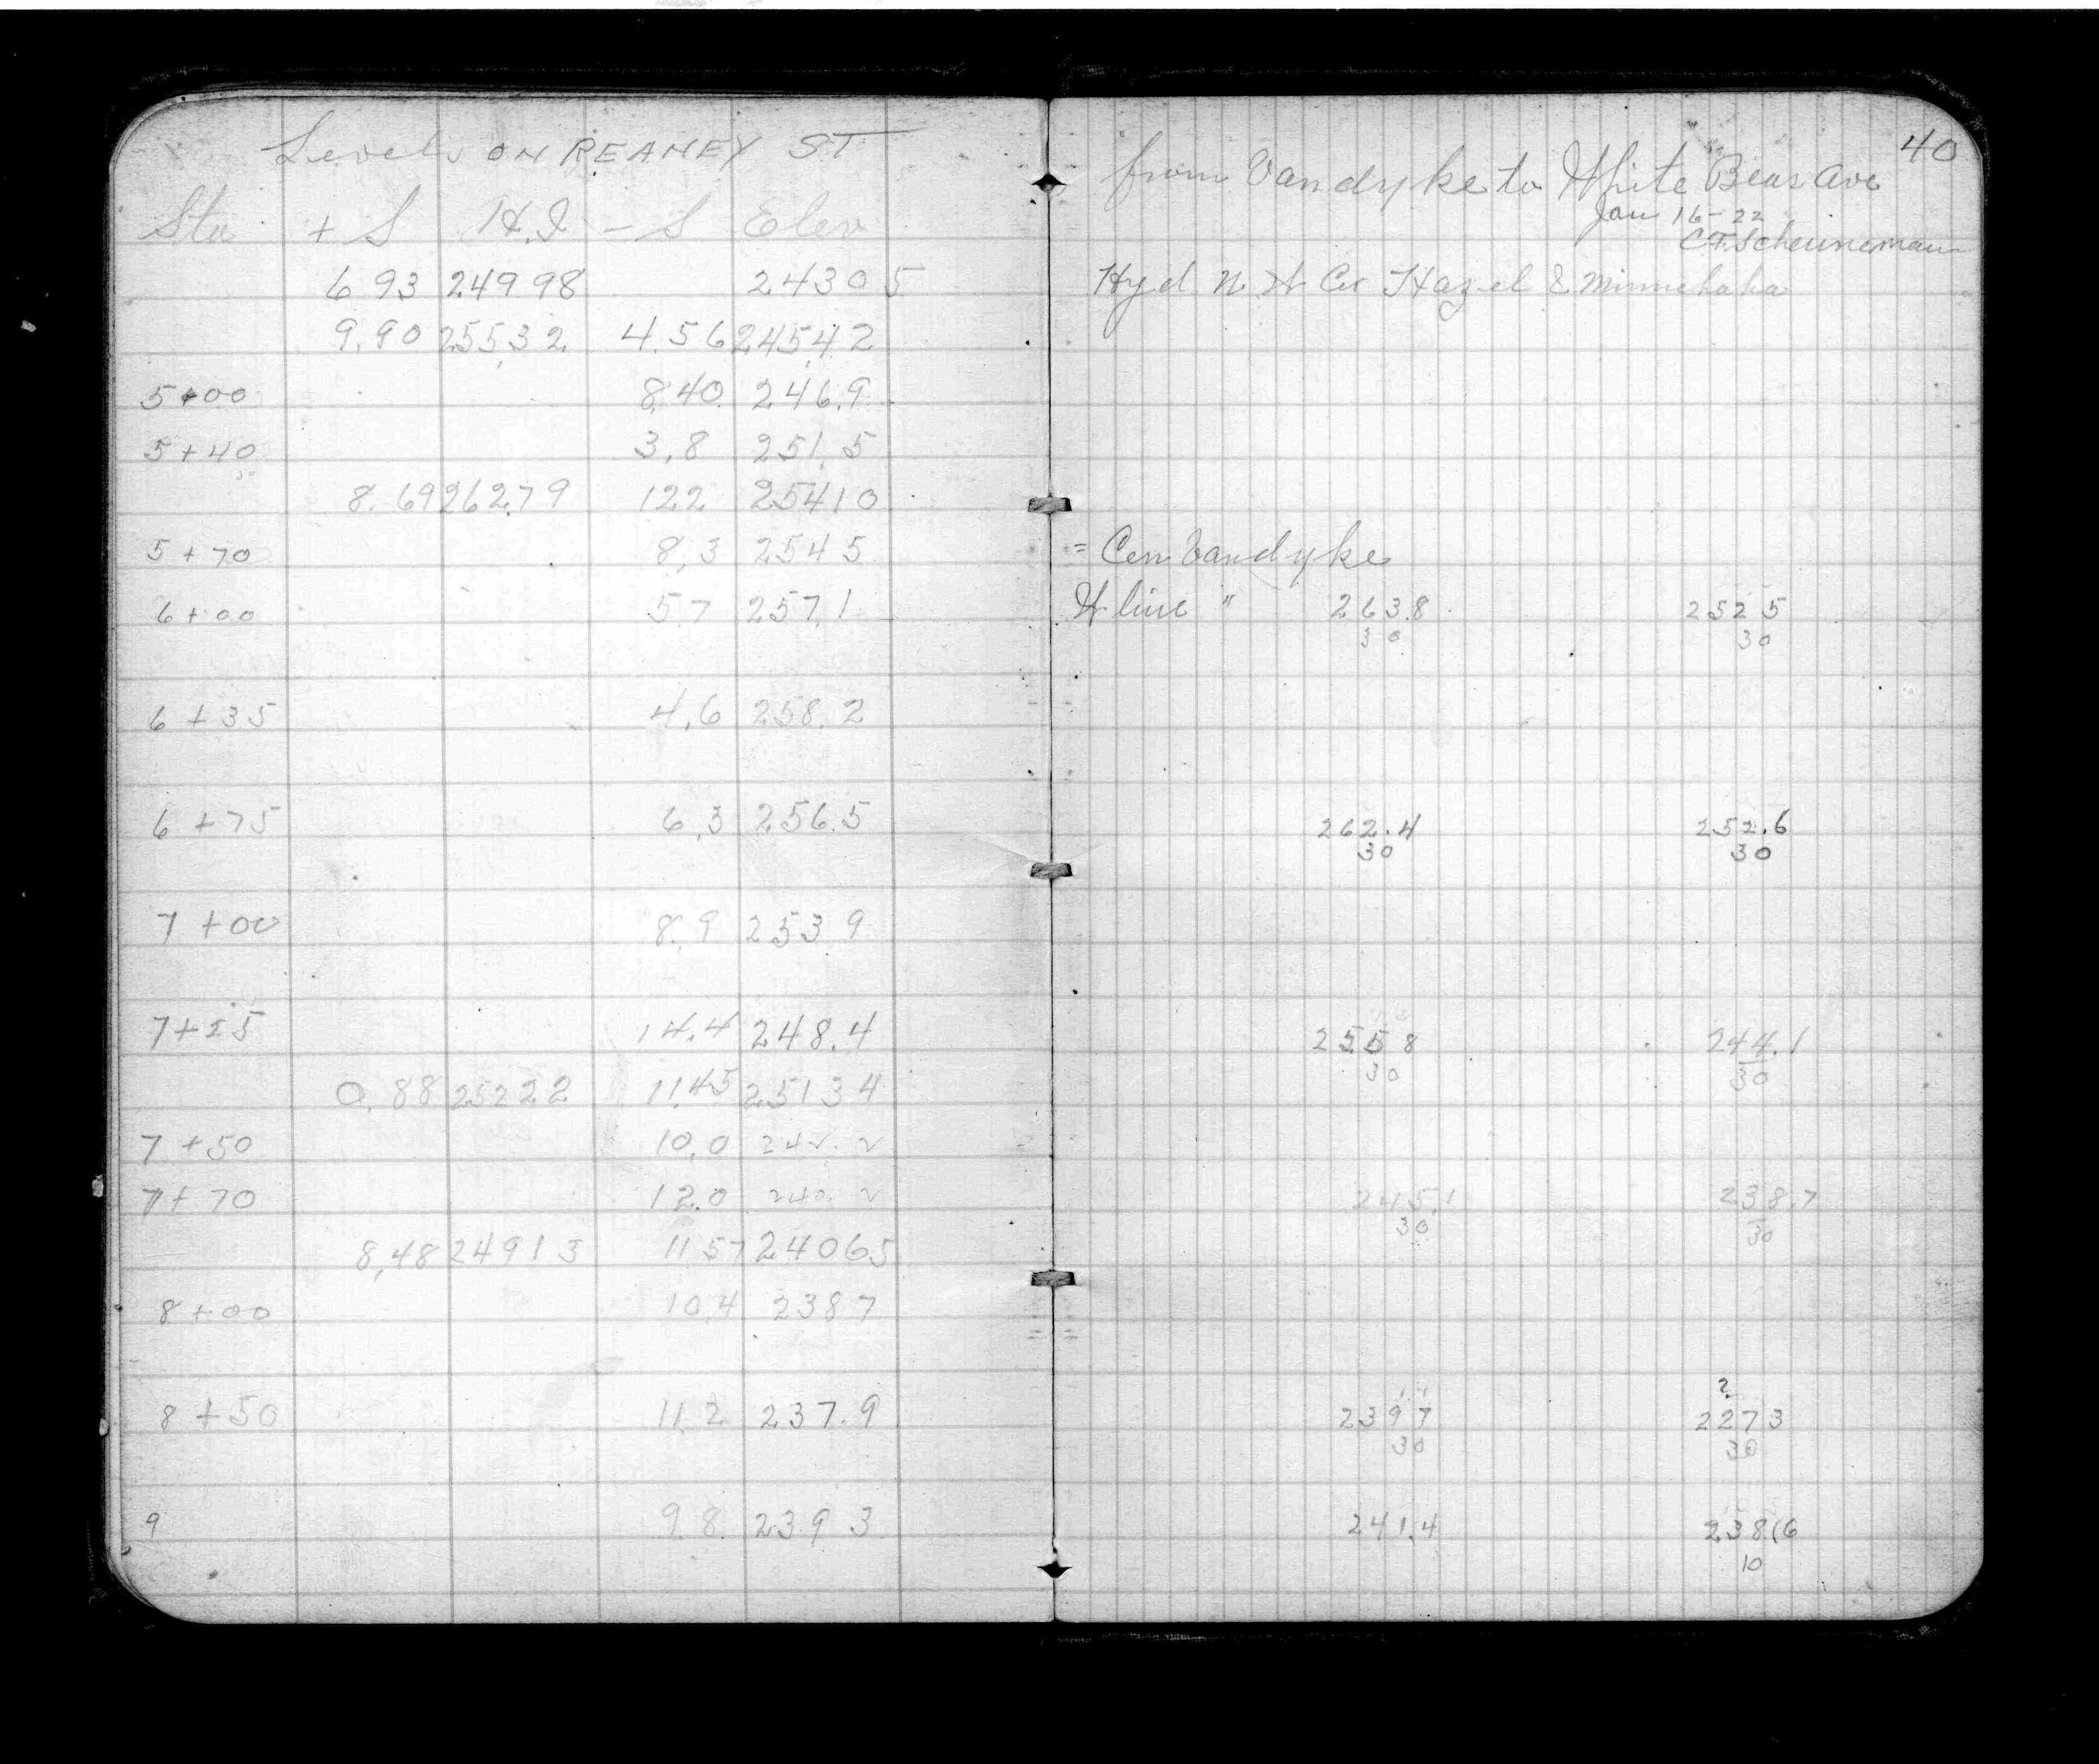 Levels ON REANEY ST
Sta + S H.I - S Elev
6 93 249 98 243 0 5
9.90 255.32 4.56 245.42
5+00 8.40 246.9
5+40 3,8 251.5
8.69 262.79 122 25410
5+70 8,3 254 5
6+00 5 7 257.1
6+35 4,6 258.2
6+75 6,3 256.5
7+00 8,9 253 9
7+25 14.4 248.4
0.88 252 22 11.45 251 3 4
7+50 10,0 242.2
7+70 12.0 240.2
8,48 249 1 3 11 57 240 65
8+00 10,4 238 7
8+50 11.2 237.9
9 9.8. 239 3
40
from Vandyke to White Bear Ave
Jan 16-22
C.F. Scheuneman
Hyd N W Cor Hazel & Minnehaha
= Cen Vandyke
W line " 263.8 252 5
30 30
262.4 252.6
30 30
255 8 244.1
30 30
245.1 238.7
30 30
?
239 7 227 3
30 30
241.4 238.6
10